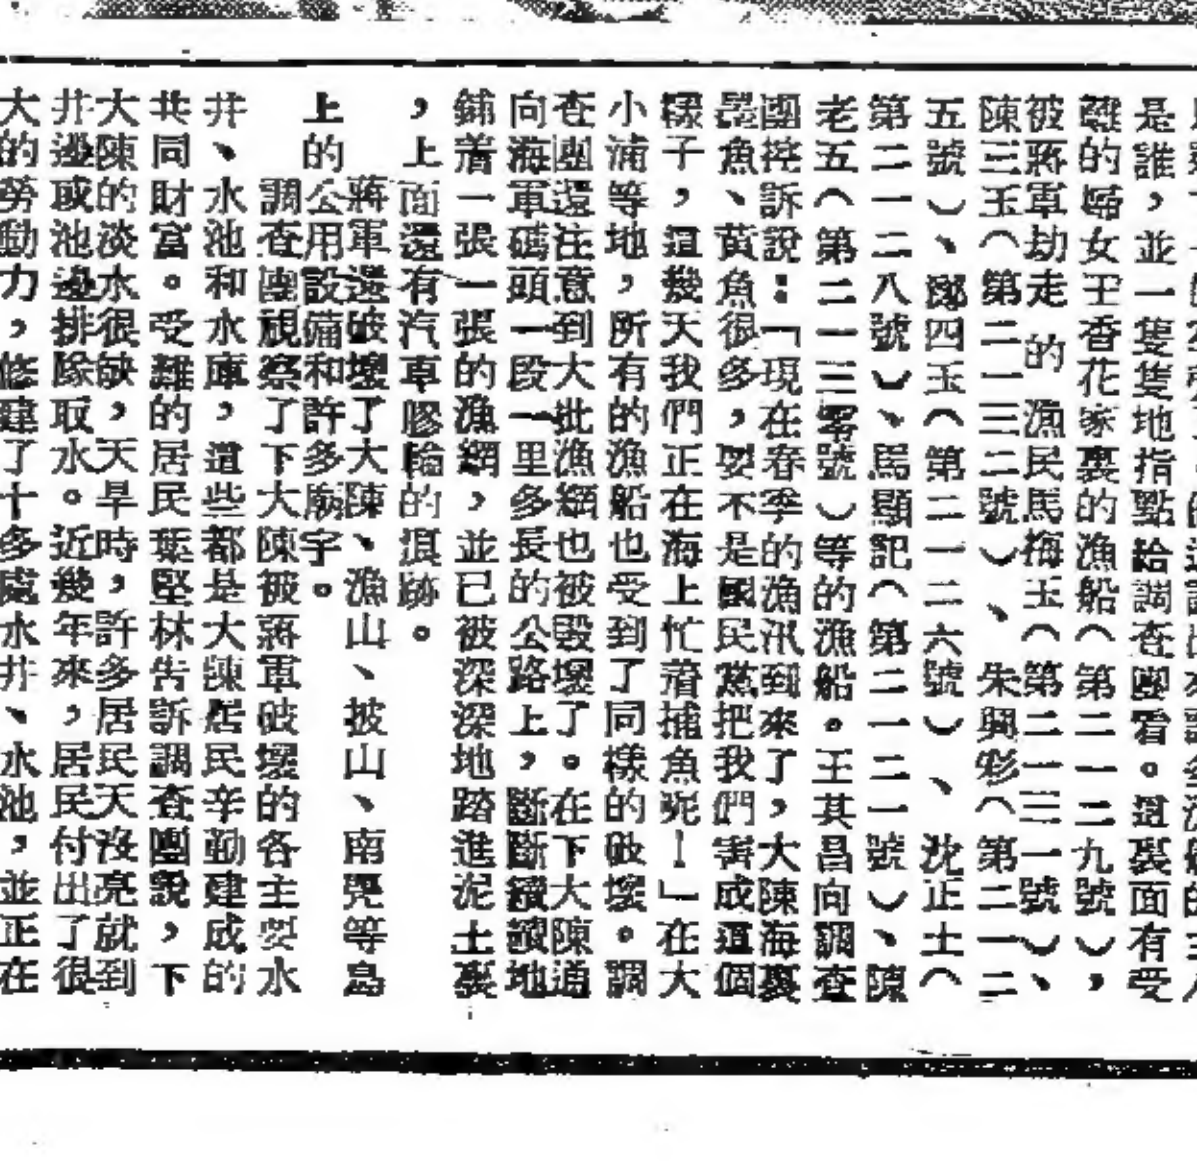 是誰，並一隻隻地指點給調查團看。這裏面有受
難的婦女王香花家裏的漁船（第二一二九號），
被蔣軍劫走的漁民馬梅玉（第二一三一號）、
陳三玉（第二一三二號）、朱興彩（第二一二
五號）、鄭四玉（第二一二六號）、沈正土（
第二一二八號）、馬顯記（第二一二一號）、陳
老五（第二一三零號）等的漁船。王其昌向調查
團控訴說：「現在春季的漁汛到來了，大陳海裏
墨魚、黃魚很多，要不是國民黨把我們害成這個
樣子，這幾天我們正在海上忙着捕魚呢！」在大
小浦等地，所有的漁船也受到了同樣的破壞。調
查團還注意到大批漁網也被毀壞了。在下大陳通
向海軍碼頭一段一里多長的公路上，斷斷續續地
鋪着一張一張的漁網，並已被深深地踏進泥土裏
，上面還有汽車膠輪的痕跡。
蔣軍還破壞了大陳、漁山、披山、南麂等島
上的公用設備和許多廟宇。
調查團視察了下大陳被蔣軍破壞的各主要水
井、水池和水庫，這些都是大陳居民辛勤建成的
共同財富。受難的居民葉堅林告訴調查團說，下
大陳的淡水很缺，天旱時，許多居民天沒亮就到
井邊或池邊排隊取水。近幾年來，居民付出了很
大的勞動力，修建了十多處水井、水池，並正在